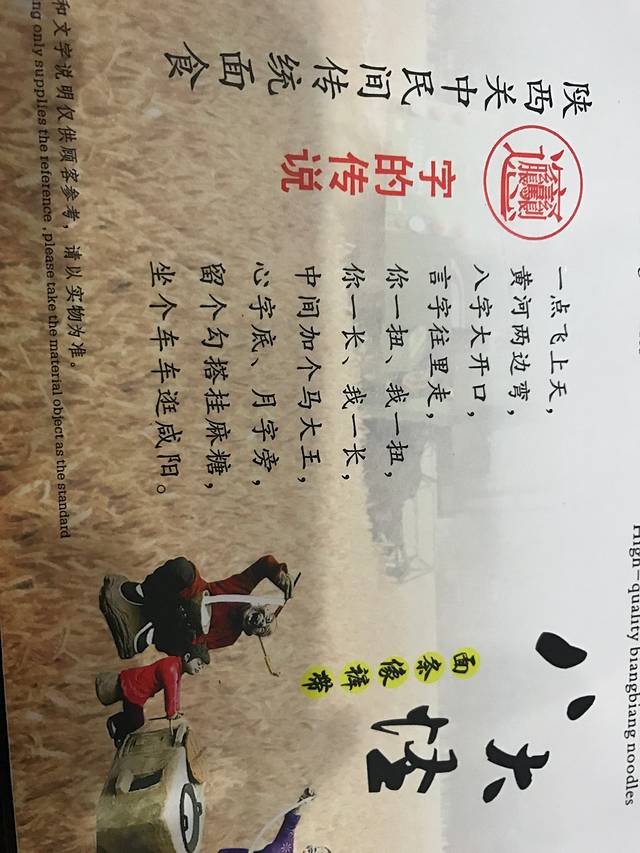 High-quality biangbiang noodles
陕西关中民间传统面食
𰻞字的传说
一点飞上天，
黄河两边弯，
八字大开口，
言字往里走，
你一扭、我一扭，
你一长、我一长，
中间加个马大王，
心字底、月字旁，
留个勾搭挂麻糖，
坐个车车逛咸阳。
八大怪
面条像裤带
和文字说明仅供顾客参考，请以实物为准。
only supplies the reference ,please take the material object as the standard